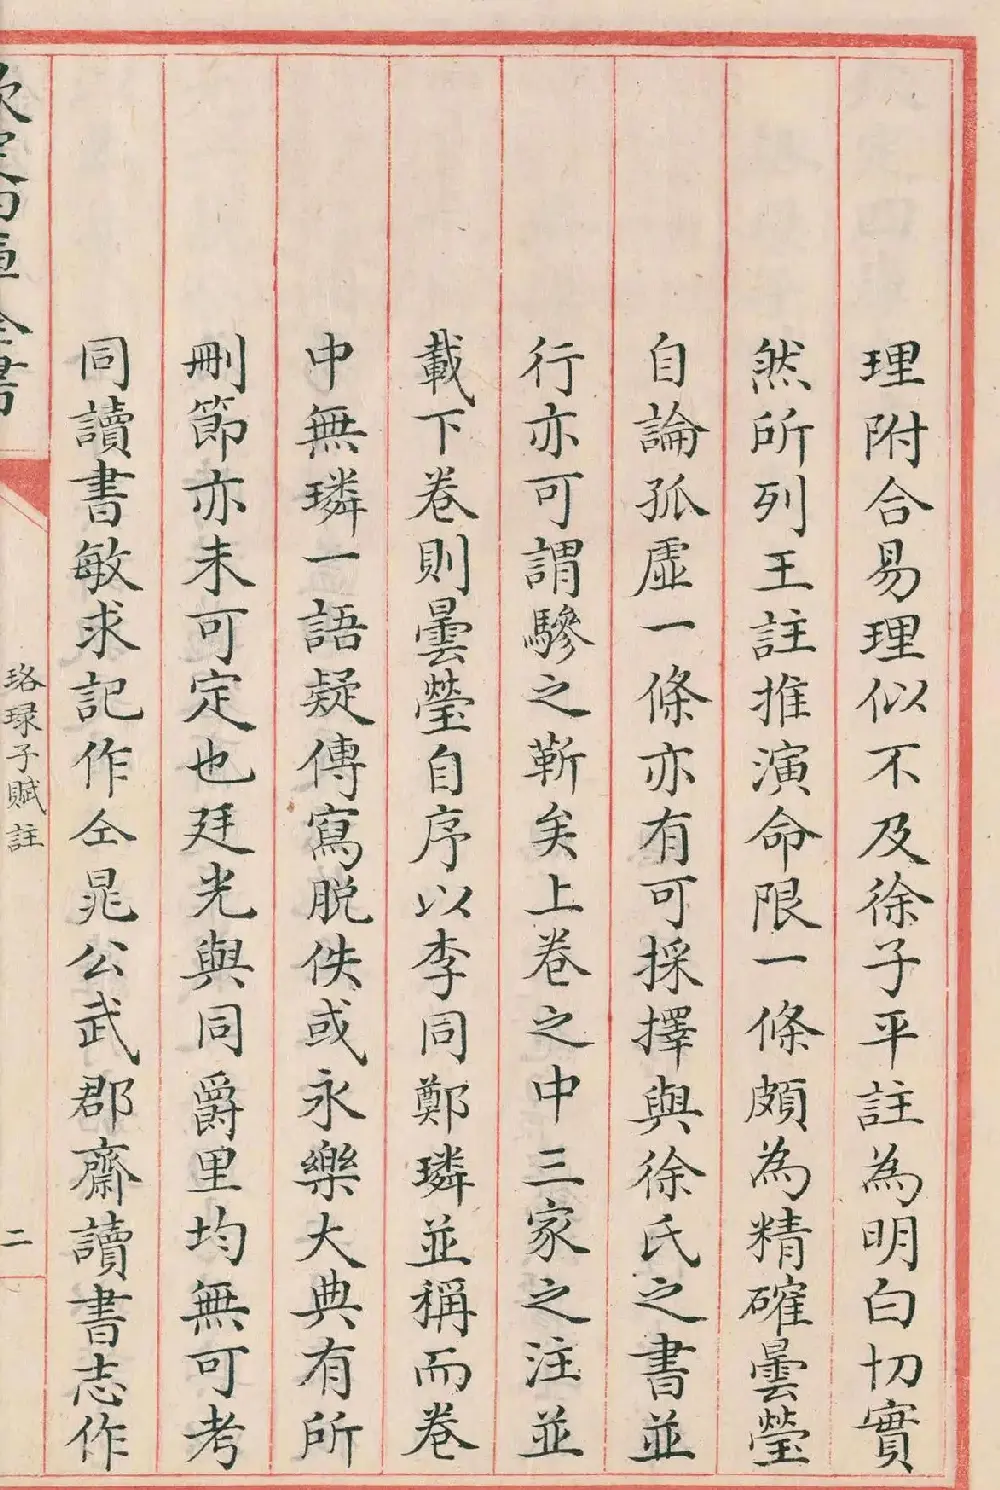 理附合易理似不及徐子平註為明白切實
然所列王註推演命限一條頗為精確曇瑩
自論孤虛一條亦有可採擇與徐氏之書並
行亦可謂驂之靳矣上卷之中三家之注並
載下卷則曇瑩自序以李同鄭璘並稱而卷
中無璘一語疑傳寫脫佚或永樂大典有所
刪節亦未可定也廷光與同爵里均無可考
同讀書敏求記作仝晁公武郡齋讀書志作
欽定四庫全書
珞琭子賦註
二